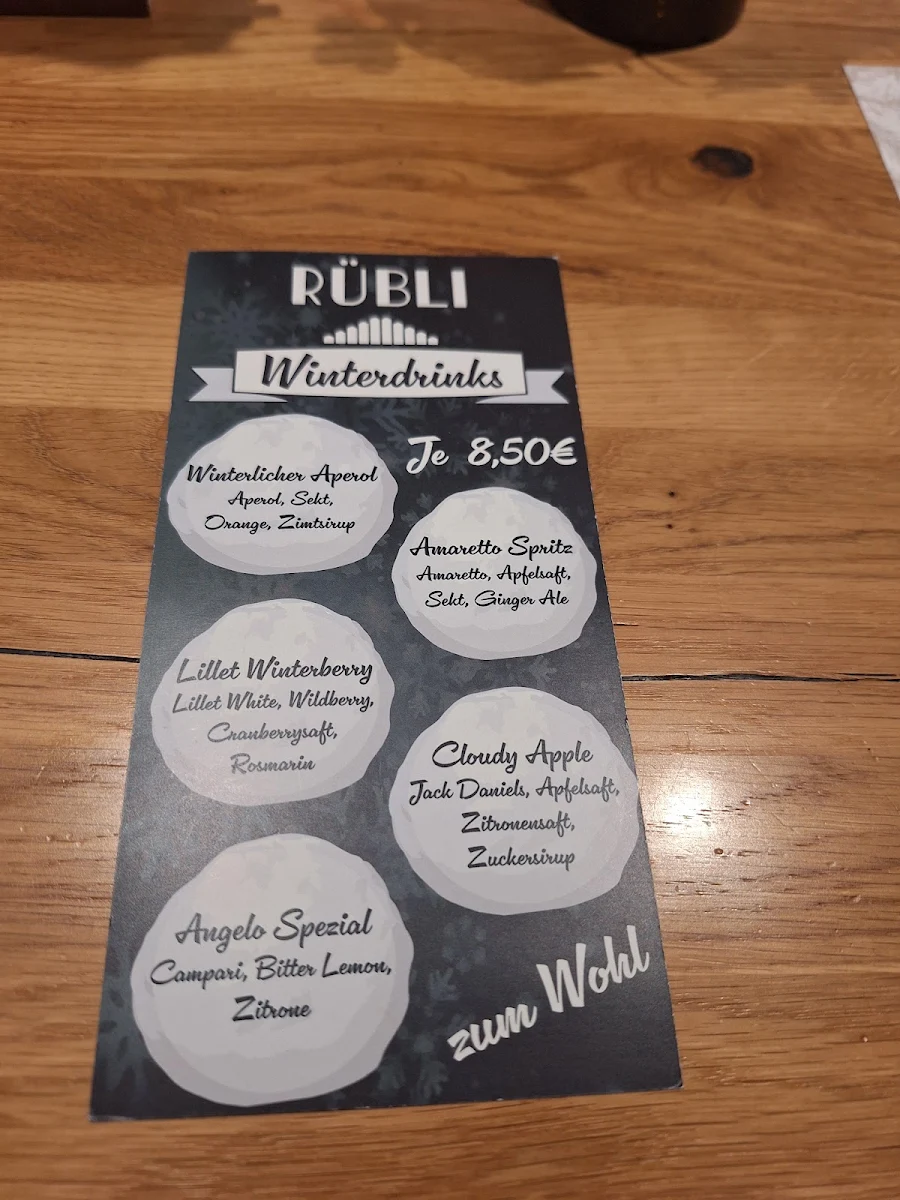 RÜBLI
Winterdrinks
Je 8,50€
Winterlicher Aperol
Aperol, Sekt,
Orange, Zimtsirup
Amaretto Spritz
Amaretto, Apfelsaft,
Sekt, Ginger Ale
Lillet Winterberry
Lillet White, Wildberry,
Cranberrysaft,
Rosmarin
Cloudy Apple
Jack Daniels, Apfelsaft,
Zitronensaft,
Zuckersirup
Angelo Spezial
Campari, Bitter Lemon,
Zitrone
zum Wohl